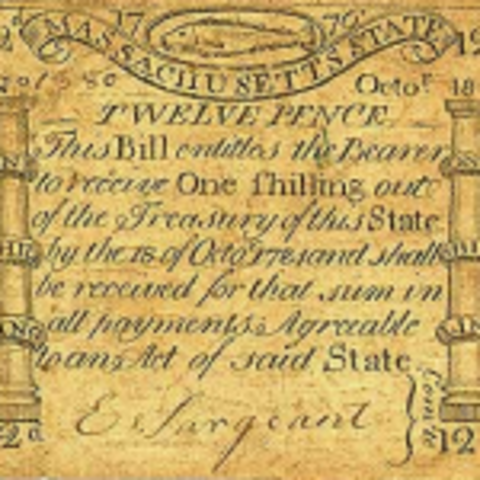 17 79
MASSACHUSETTS STATE
12
No 1580 Octor 18
TWELVE PENCE
This Bill entitles the Bearer
to receive One ſhilling out
of the Treasury of this State
by the 18 of Octor 1781 and shall
be received for that sum in
all payments Agreeable
to an Act of said State
E Sargeant
2d 12